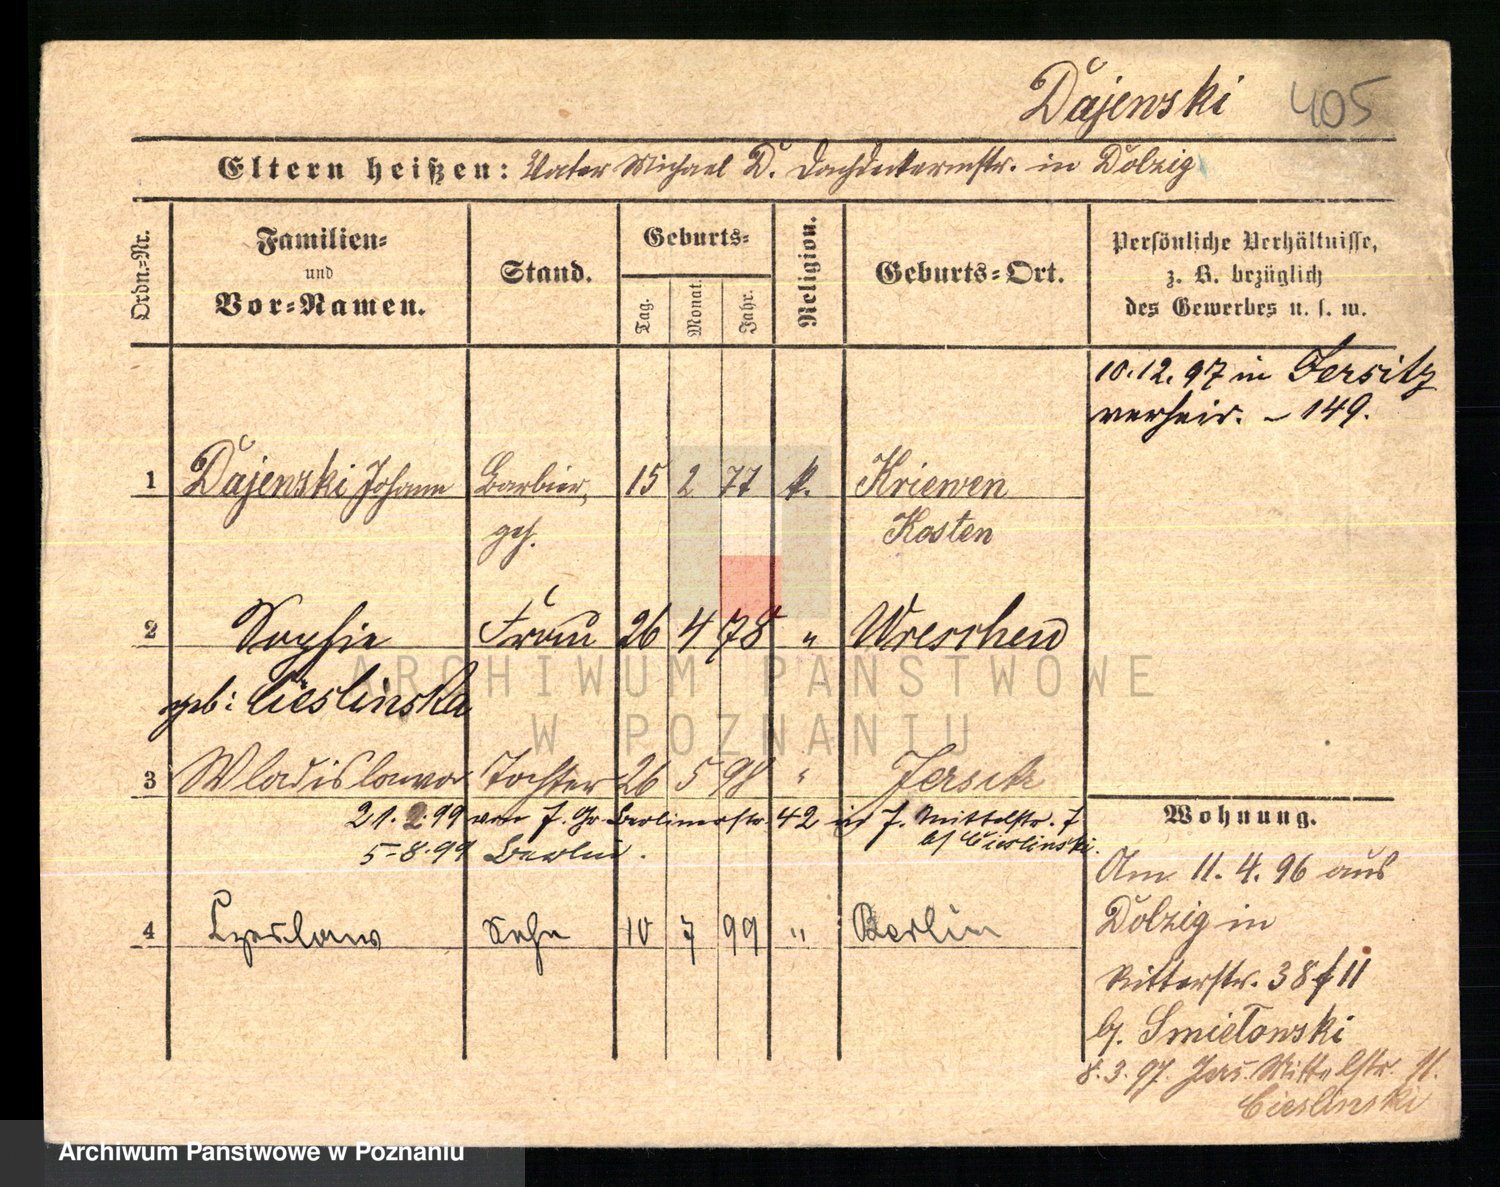 Dájewski 405
Eltern heißen: Vater Michael D. Dachdeckermstr. in Dolzig
Ordn.=Nr.
Familien=
und
Vor=Namen.
Stand.
Geburts=
Tag.
Monat.
Jahr.
Religion.
Geburts=Ort.
Persönliche Verhältnisse,
z. B. bezüglich
des Gewerbes u. s. w.
10.12.97 in Jersitz
verheir. – 149.
1 Dájewski Johann Barbier, 15 2 77 k. Kriewen
geh. Kosten
2 Sophie Frau 26 4 78 " Wreschen
geb: Cieslinska
3 Wladislawa Tochter 26 5 98 " Jersitz
21.2.99 von J. Gr. Berlinerstr. 42 in J. Mittelstr. 7
b/ Cieslinski.
5-8.99 Berlin.
4 Czeslaw Sohn 10 7 99 " Berlin
Wohnung.
Am 11.4.96 aus
Dolzig in
Ritterstr. 38 f 11
b/. Smielowski
8.3.97. Jers. Mittelstr. 11.
Cieslinski
ARCHIWUM PAŃSTWOWE
W POZNANIU
Archiwum Państwowe w Poznaniu